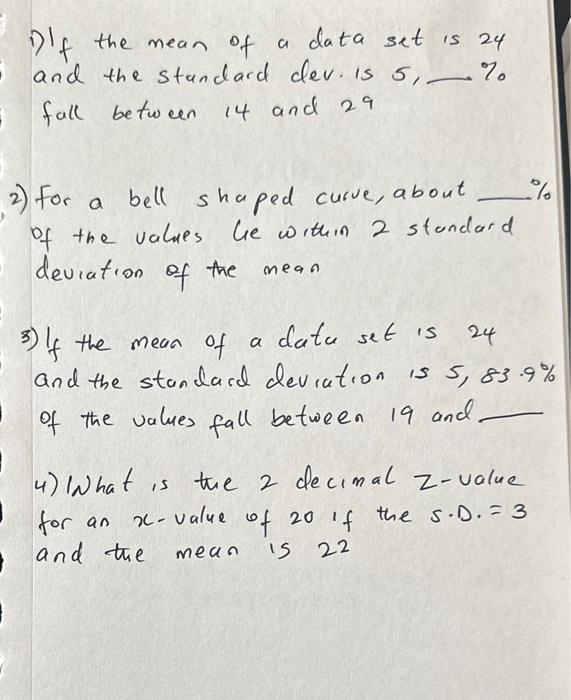 1) If the mean of a data set is 24
and the standard dev. is 5, __%
fall between 14 and 29
2) for a bell shaped curve, about __%
of the values lie within 2 standard
deviation of the mean
3) If the mean of a data set is 24
and the standard deviation is 5, 83.9%
of the values fall between 19 and __
4) What is the 2 decimal z-value
for an x-value of 20 if the S.D. = 3
and the mean is 22